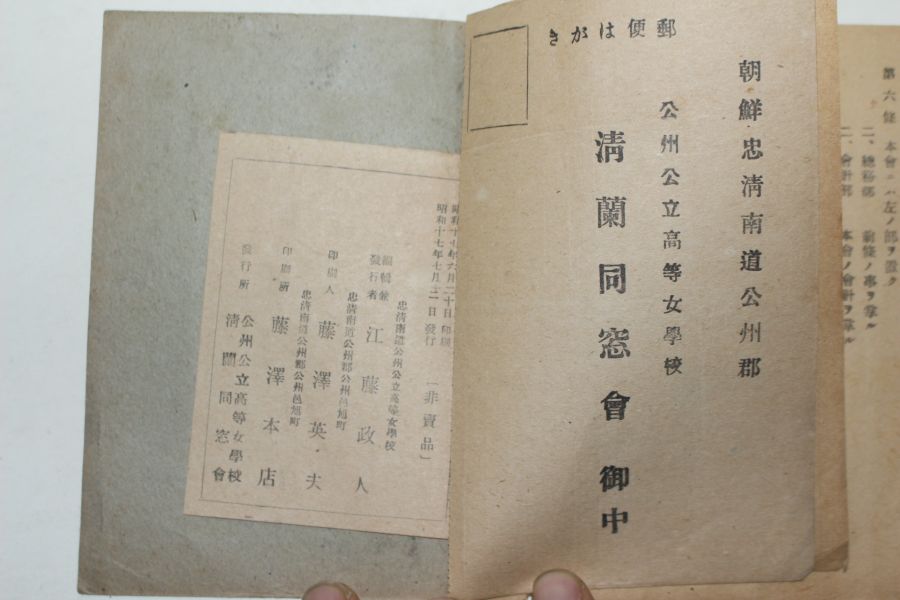 第六條 本會ニハ左ノ部ヲ置ク
二、總務部 前條ノ事ヲ掌ル
二、會計部 本會ノ會計ヲ掌ル
郵便はがき
朝鮮忠清南道公州郡
公州公立高等女學校
清蘭同窓會 御中
昭和十七年六月二十日印刷
昭和十七年七月二日發行
「非賣品」
忠清南道公州公立高等女學校
編輯兼發行者 江藤政人
忠清南道公州郡公州邑旭町
印刷人 藤澤英夫
忠清南道公州郡公州邑旭町
印刷所 藤澤本店
發行所 公州公立高等女學校
清蘭同窓會